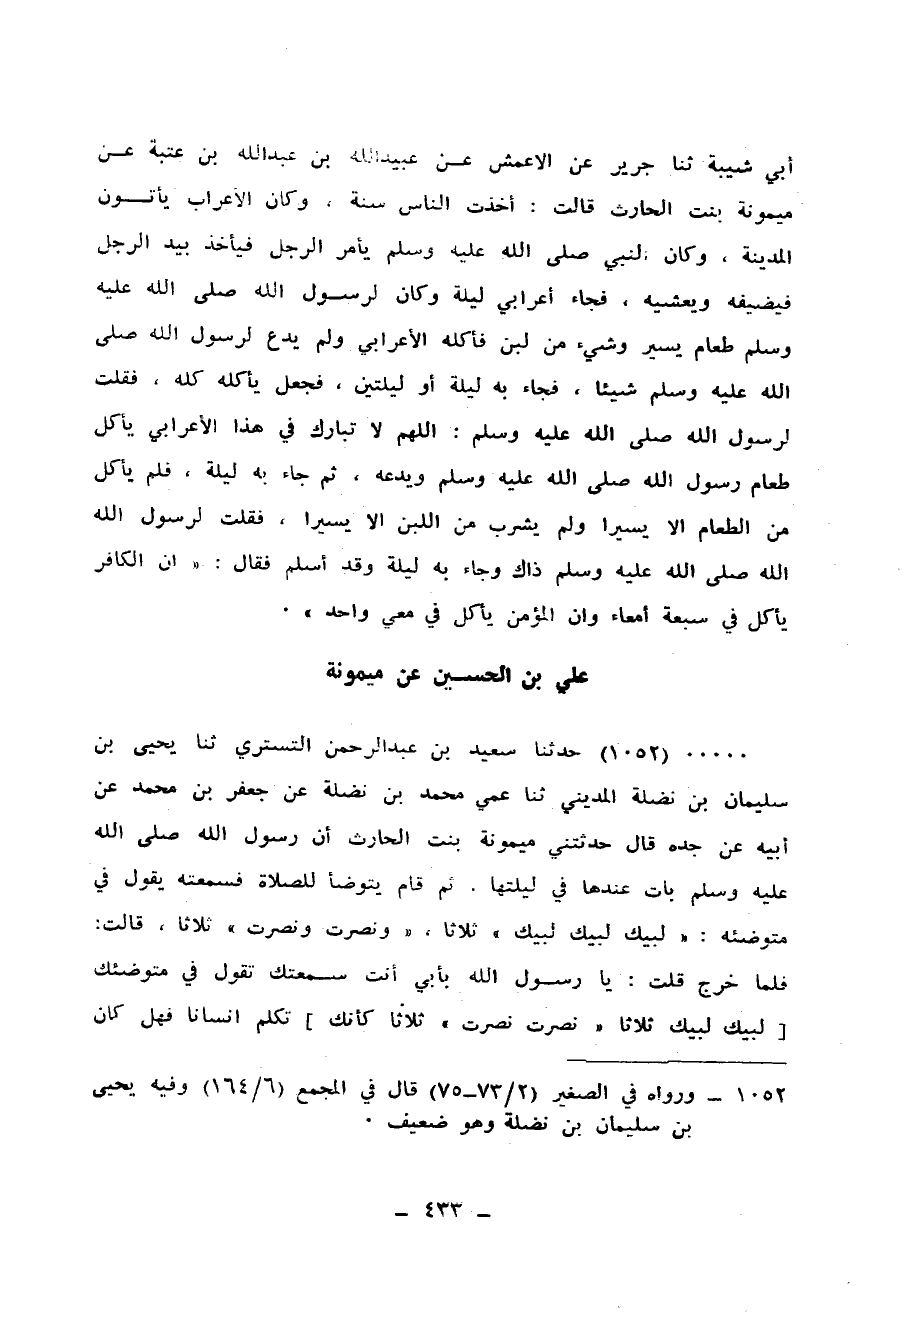 أبي شيبة ثنا جرير عن الاعمش عن عبيدالله بن عبدالله بن عتبة عن
ميمونة بنت الحارث قالت : أخذت الناس سنة ، وكان الأعراب يأتون
المدينة ، وكان النبي صلى الله عليه وسلم يأمر الرجل فيأخذ بيد الرجل
فيضيفه ويعشيه ، فجاء أعرابي ليلة وكان لرسول الله صلى الله عليه
وسلم طعام يسير وشيء من لبن فأكله الأعرابي ولم يدع لرسول الله صلى
الله عليه وسلم شيئا ، فجاء به ليلة أو ليلتين ، فجعل يأكله كله ، فقلت
لرسول الله صلى الله عليه وسلم : اللهم لا تبارك في هذا الأعرابي يأكل
طعام رسول الله صلى الله عليه وسلم ويدعه ، ثم جاء به ليلة ، فلم يأكل
من الطعام الا يسيرا ولم يشرب من اللبن الا يسيرا ، فقلت لرسول الله
الله صلى الله عليه وسلم ذاك وجاء به ليلة وقد أسلم فقال : « ان الكافر
يأكل في سبعة أمعاء وان المؤمن يأكل في معي واحد » ٠
علي بن الحسين عن ميمونة
٠٠٠٠٠ (١٠٥٢) حدثنا سعيد بن عبدالرحمن التستري ثنا يحيى بن
سليمان بن نضلة المديني ثنا عمي محمد بن نضلة عن جعفر بن محمد عن
أبيه عن جده قال حدثتني ميمونة بنت الحارث أن رسول الله صلى الله
عليه وسلم بات عندها في ليلتها . ثم قام يتوضأ للصلاة فسمعته يقول في
متوضئه : « لبيك لبيك لبيك » ثلاثا ، « ونصرت ونصرت » ثلاثا ، قالت:
فلما خرج قلت : يا رسول الله بأبي أنت سمعتك تقول في متوضئك
[ لبيك لبيك ثلاثا « نصرت نصرت » ثلاثا كأنك ] تكلم انسانا فهل كان
١٠٥٢ ــ ورواه في الصغير (٢/٧٣ــ٧٥) قال في المجمع (٦/١٦٤) وفيه يحيى
بن سليمان بن نضلة وهو ضعيف ٠
ــ ٤٣٣ ــ